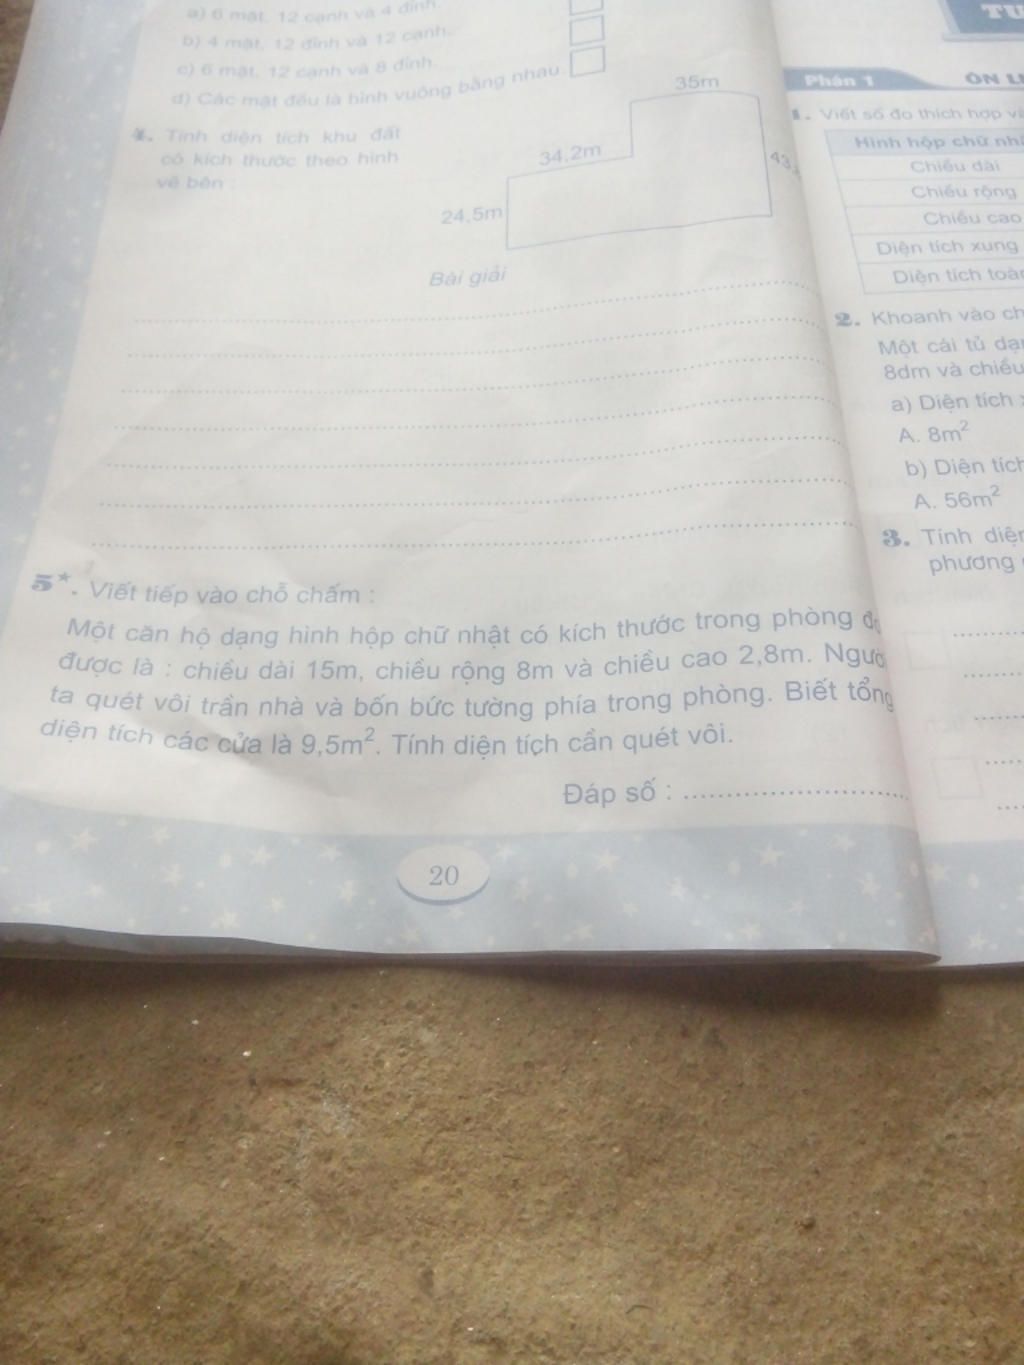 a) 6 mặt, 12 cạnh và 4 đỉnh.
b) 4 mặt, 12 đỉnh và 12 cạnh.
c) 6 mặt, 12 cạnh và 8 đỉnh.
d) Các mặt đều là hình vuông bằng nhau.
4. Tính diện tích khu đất
có kích thước theo hình
vẽ bên :
35m
34,2m
43,
24,5m
Bài giải
5*. Viết tiếp vào chỗ chấm :
Một căn hộ dạng hình hộp chữ nhật có kích thước trong phòng
được là : chiều dài 15m, chiều rộng 8m và chiều cao 2,8m. Ngườ
ta quét vôi trần nhà và bốn bức tường phía trong phòng. Biết tổng
diện tích các cửa là 9,5m². Tính diện tích cần quét vôi.
Đáp số : ........................
20
TU
Phần 1
ÔN L
1. Viết số đo thích hợp v
Hình hộp chữ nh
Chiều dài
Chiều rộng
Chiều cao
Diện tích xung
Diện tích toà
2. Khoanh vào ch
Một cái tủ dạ
8dm và chiều
a) Diện tích
A. 8m²
b) Diện tích
A. 56m²
3. Tính diệ
phương